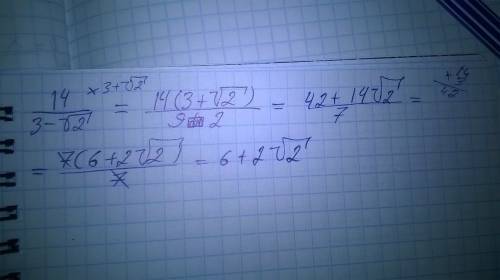 14 / (3 - √2) × 3 + √2 = 14(3 + √2) / (9 - 2) = (42 + 14√2) / 7 =
= 7(6 + 2√2) / 7 = 6 + 2√2